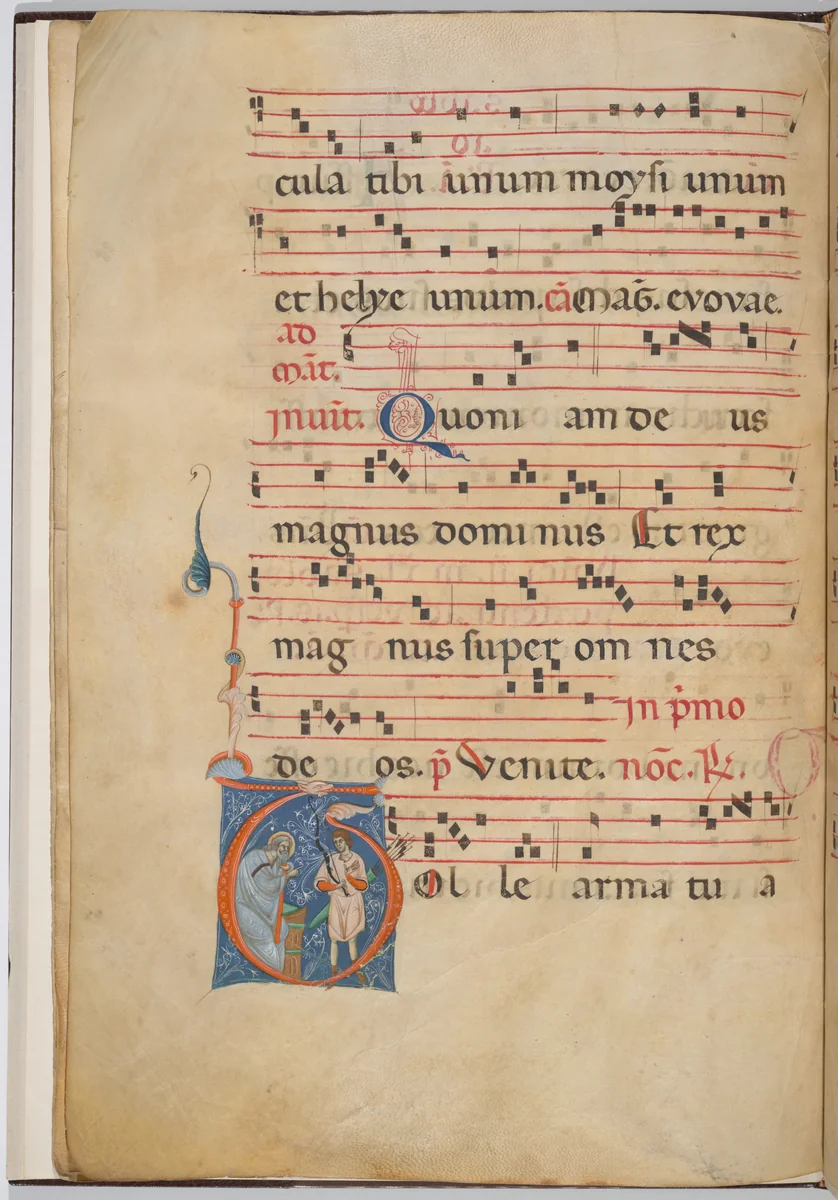 cula tibi unum moysi unum
et helye unum. cā mag̃. evovae.
ad
mat̃.
Invit̃. Quoni am de us
magnus domi nus Et rex
mag nus super om nes
In p̃mo
de os. p̃ Venite. noc̃. R̃.
Ol le arma tu a